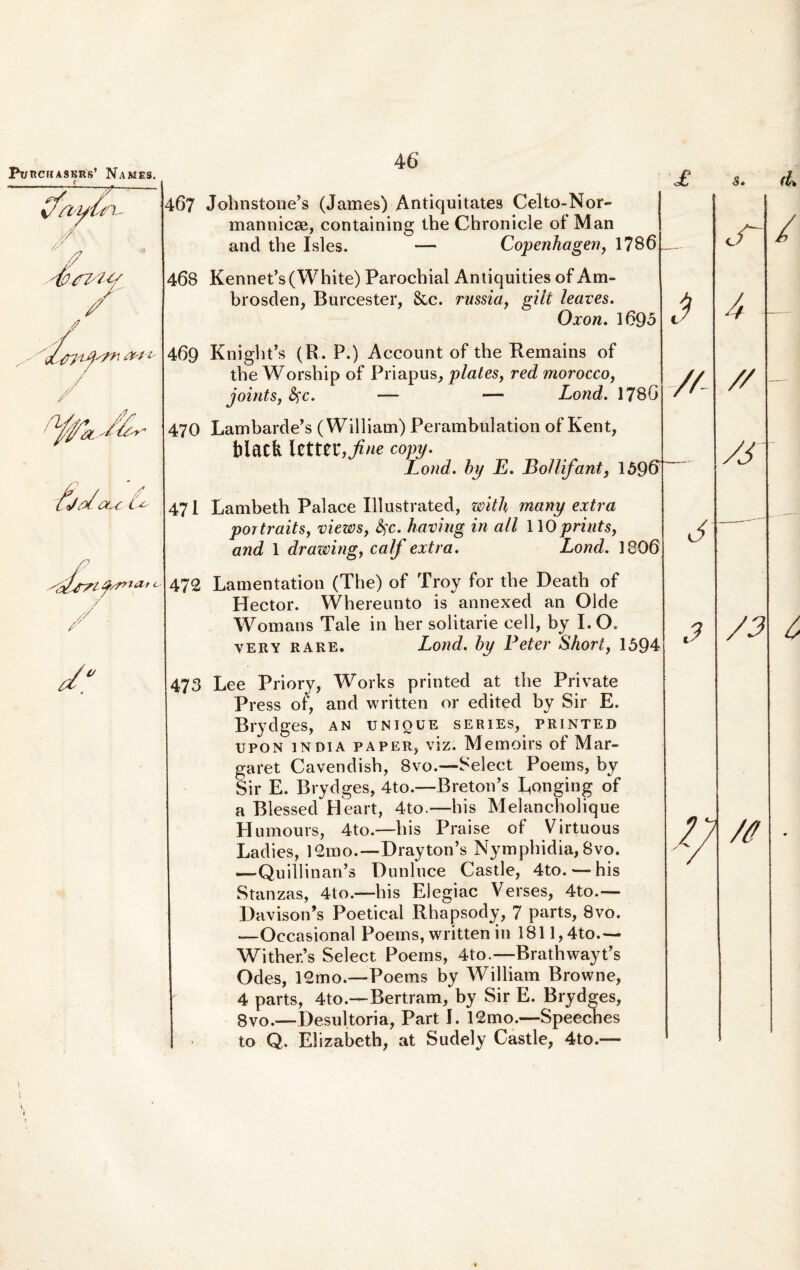 46
Purchasers' Names.
£ s. d.
Taylor
467 Johnstone's (James) Antiquitates Celto-Nor-
mannicæ, containing the Chronicle of Man
and the Isles. — Copenhagen, 1786
5
468 Kennet's (White) Parochial Antiquities of Am-
brosden, Burcester, &c. russia, gilt leaves.
Oxon. 1695
3 4
Longman
469 Knight's (R. P.) Account of the Remains of
the Worship of Priapus, plates, red morocco,
joints, &c. — — Lond. 1786
11 11
470 Lambarde's (William) Perambulation of Kent,
black letter, fine copy.
Lond. by E. Bollifant, 1596
13
471 Lambeth Palace Illustrated, with many extra
portraits, views, &c. having in all 110 prints,
and 1 drawing, calf extra. Lond. 1806
3
Longman
472 Lamentation (The) of Troy for the Death of
Hector. Whereunto is annexed an Olde
Womans Tale in her solitarie cell, by I. O.
VERY RARE. Lond. by Peter Short, 1594
3 13 6
do
473 Lee Priory, Works printed at the Private
Press of, and written or edited by Sir E.
Brydges, AN UNIQUE SERIES, PRINTED
UPON INDIA PAPER, viz. Memoirs of Mar-
garet Cavendish, 8vo.—Select Poems, by
Sir E. Brydges, 4to.—Breton's Longing of
a Blessed Heart, 4to.—his Melancholique
Humours, 4to.—his Praise of Virtuous
Ladies, 12mo.—Drayton's Nymphidia, 8vo.
—Quillinan's Dunluce Castle, 4to.—his
Stanzas, 4to.—his Elegiac Verses, 4to.—
Davison's Poetical Rhapsody, 7 parts, 8vo.
—Occasional Poems, written in 1811, 4to.—
Wither's Select Poems, 4to.—Brathwayt's
Odes, 12mo.—Poems by William Browne,
4 parts, 4to.—Bertram, by Sir E. Brydges,
8vo.—Desultoria, Part I. 12mo.—Speeches
to Q. Elizabeth, at Sudely Castle, 4to.—
27 10